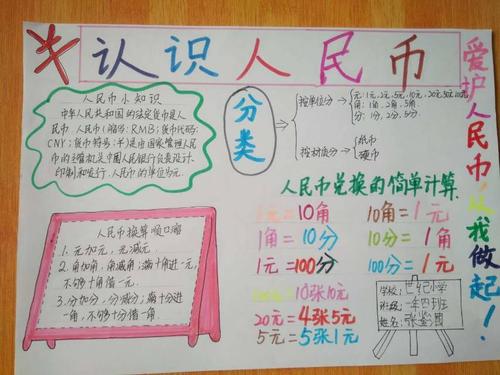 认识人民币
爱护人民币，从我做起！
人民币小知识
中华人民共和国的法定货币是人
民币，人民币(缩写：RMB；货币代码：
CNY；货币符号：¥)是由国家管理人民
币的主管机关中国人民银行负责设计、
印制和发行，人民币的单位为元。
分类
按单位分
元：1元，2元，5元，10元，20元，50元，100元
角：1角，2角，5角
分：1分，2分，5分
按材质分
纸币
硬币
人民币换算顺口溜
1. 元加元，元减元。
2. 角加角，角减角；满十角进一元，
不够十角借一元。
3. 分加分，分减分；满十分进
一角，不够十分借一角。
人民币兑换的简单计算
1元=10角
10角=1元
1角=10分
10分=1角
1元=100分
100分=1元
100元=10张10元
20元=4张5元
5元=5张1元
学校：世纪小学
班级：一年四班
姓名：张